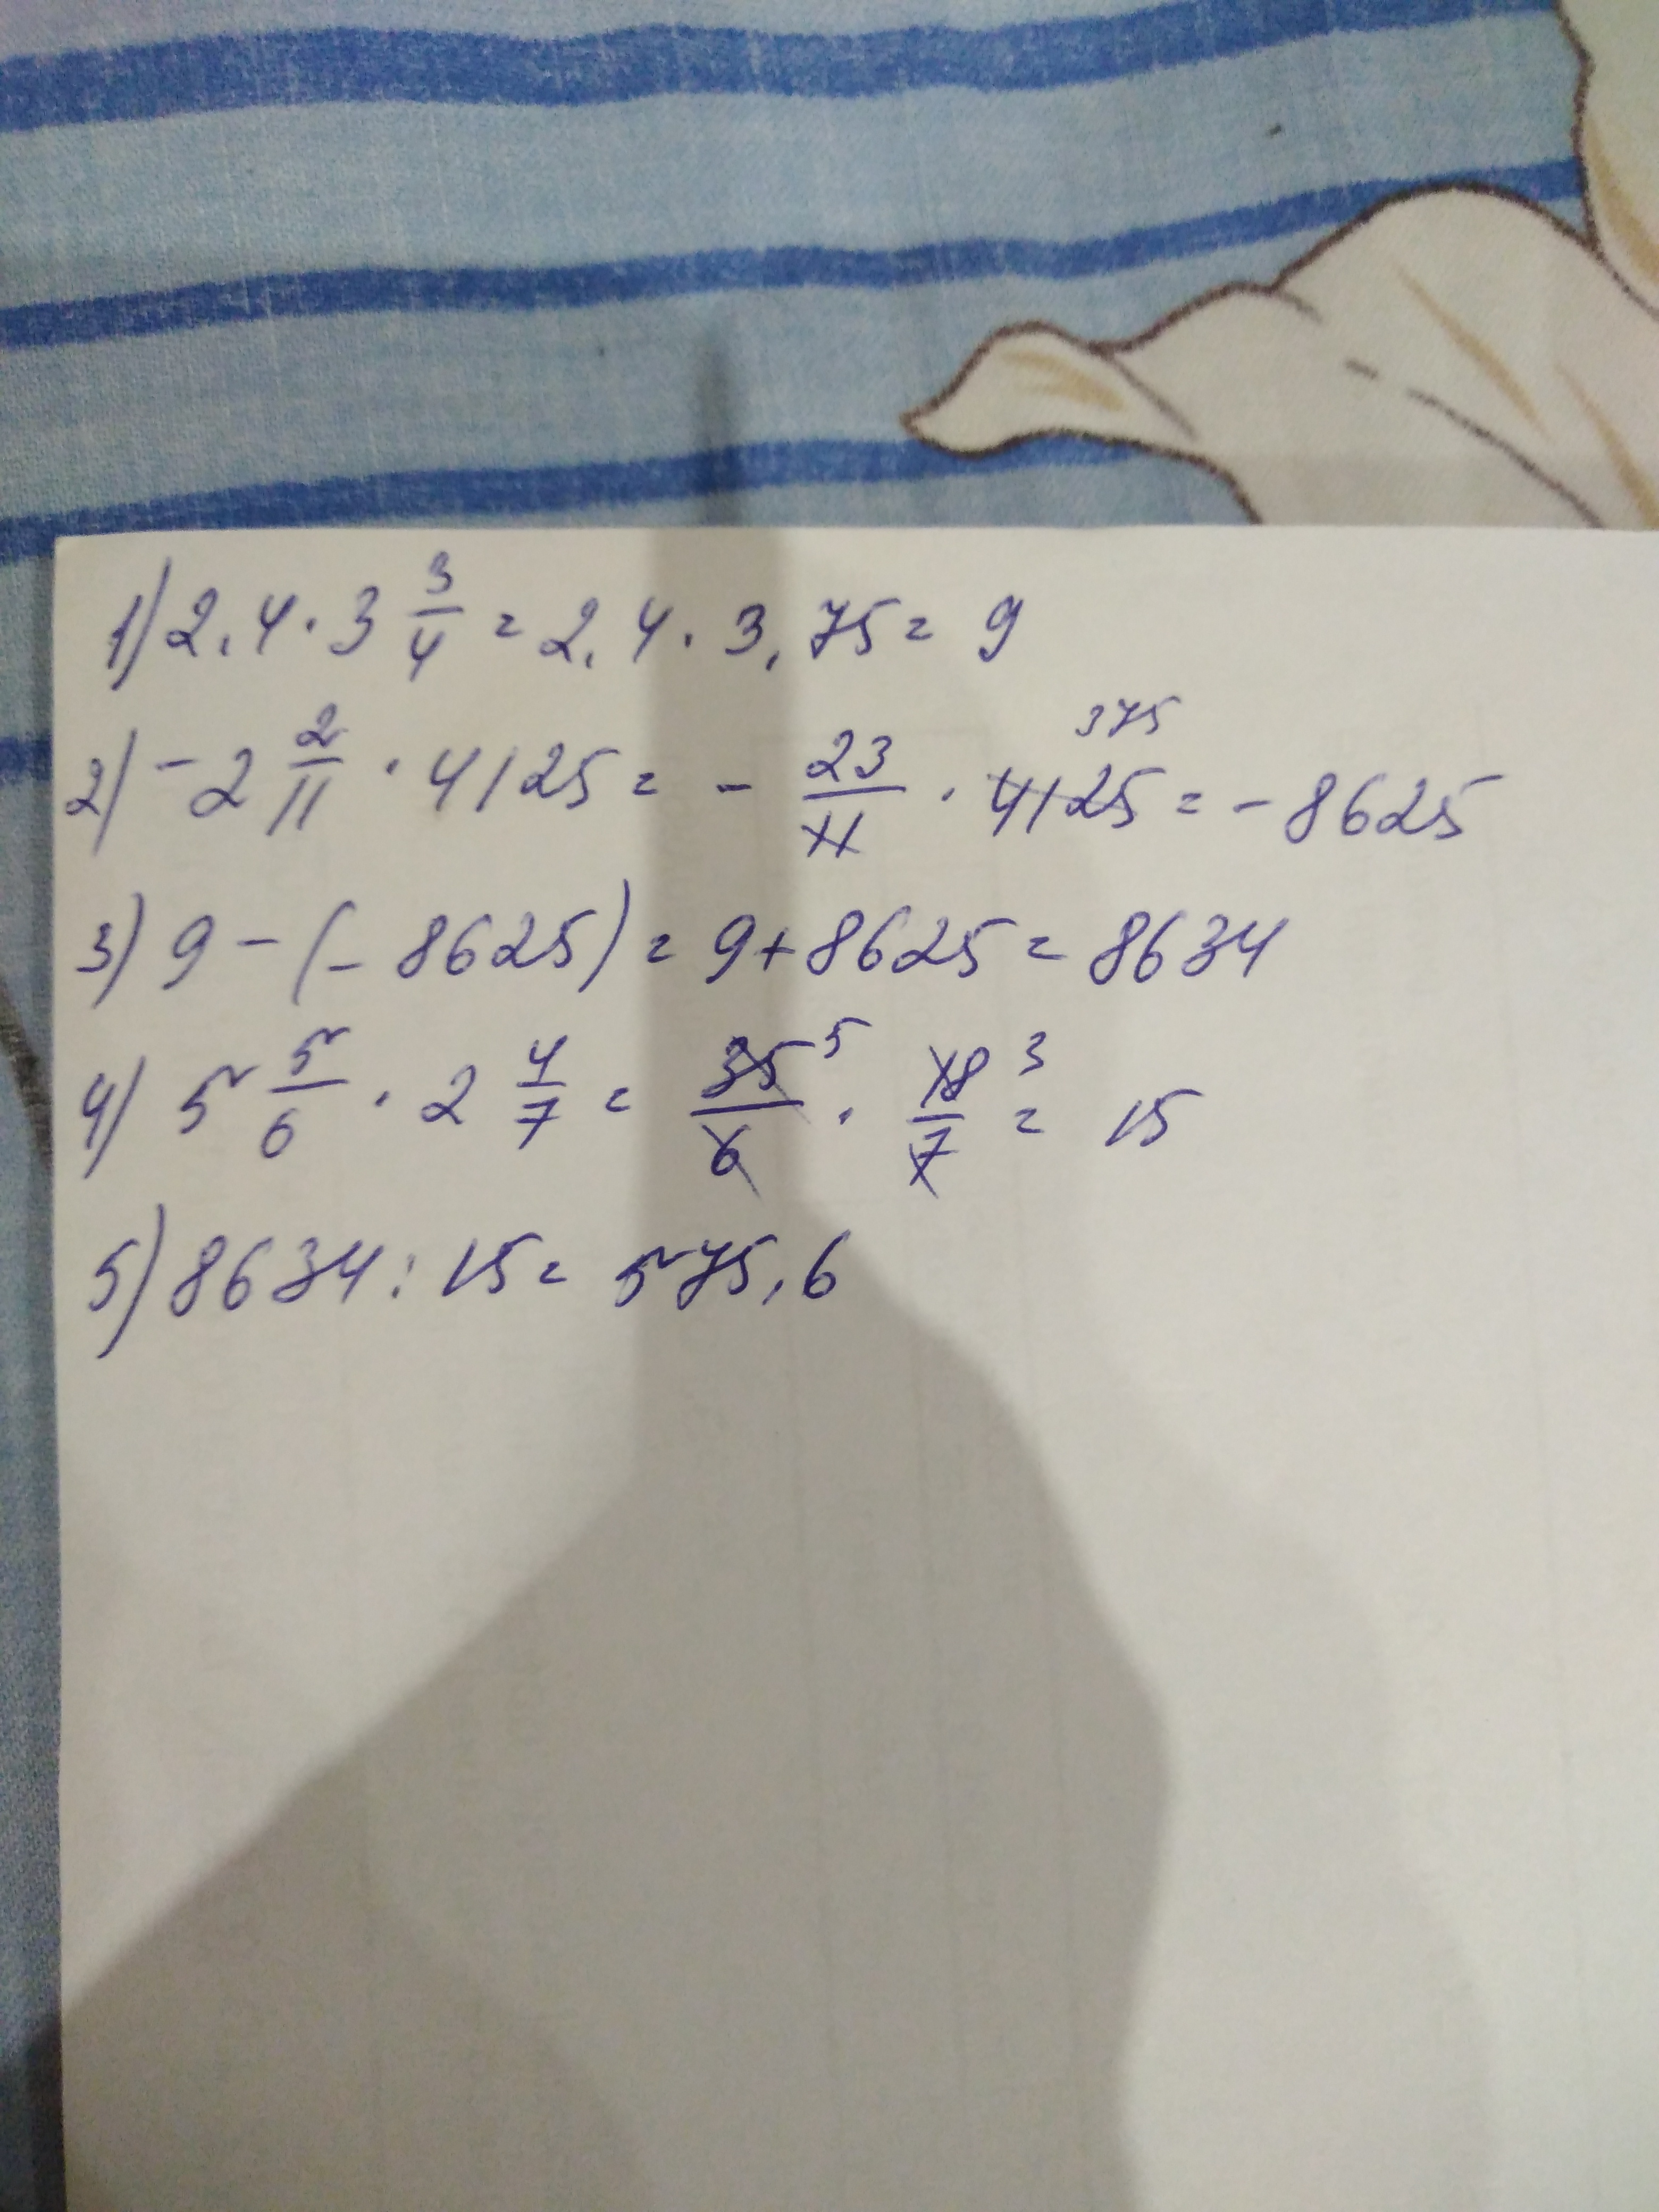 1) 2,4 · 3 3/4 = 2,4 · 3,75 = 9
2) -2 2/11 · 4125 = - 23/11 · 4125 375 = - 8625
3) 9 - (- 8625) = 9 + 8625 = 8634
4) 5 5/6 · 2 4/7 = 35/6 5 · 18/7 3 = 15
5) 8634 : 15 = 575,6